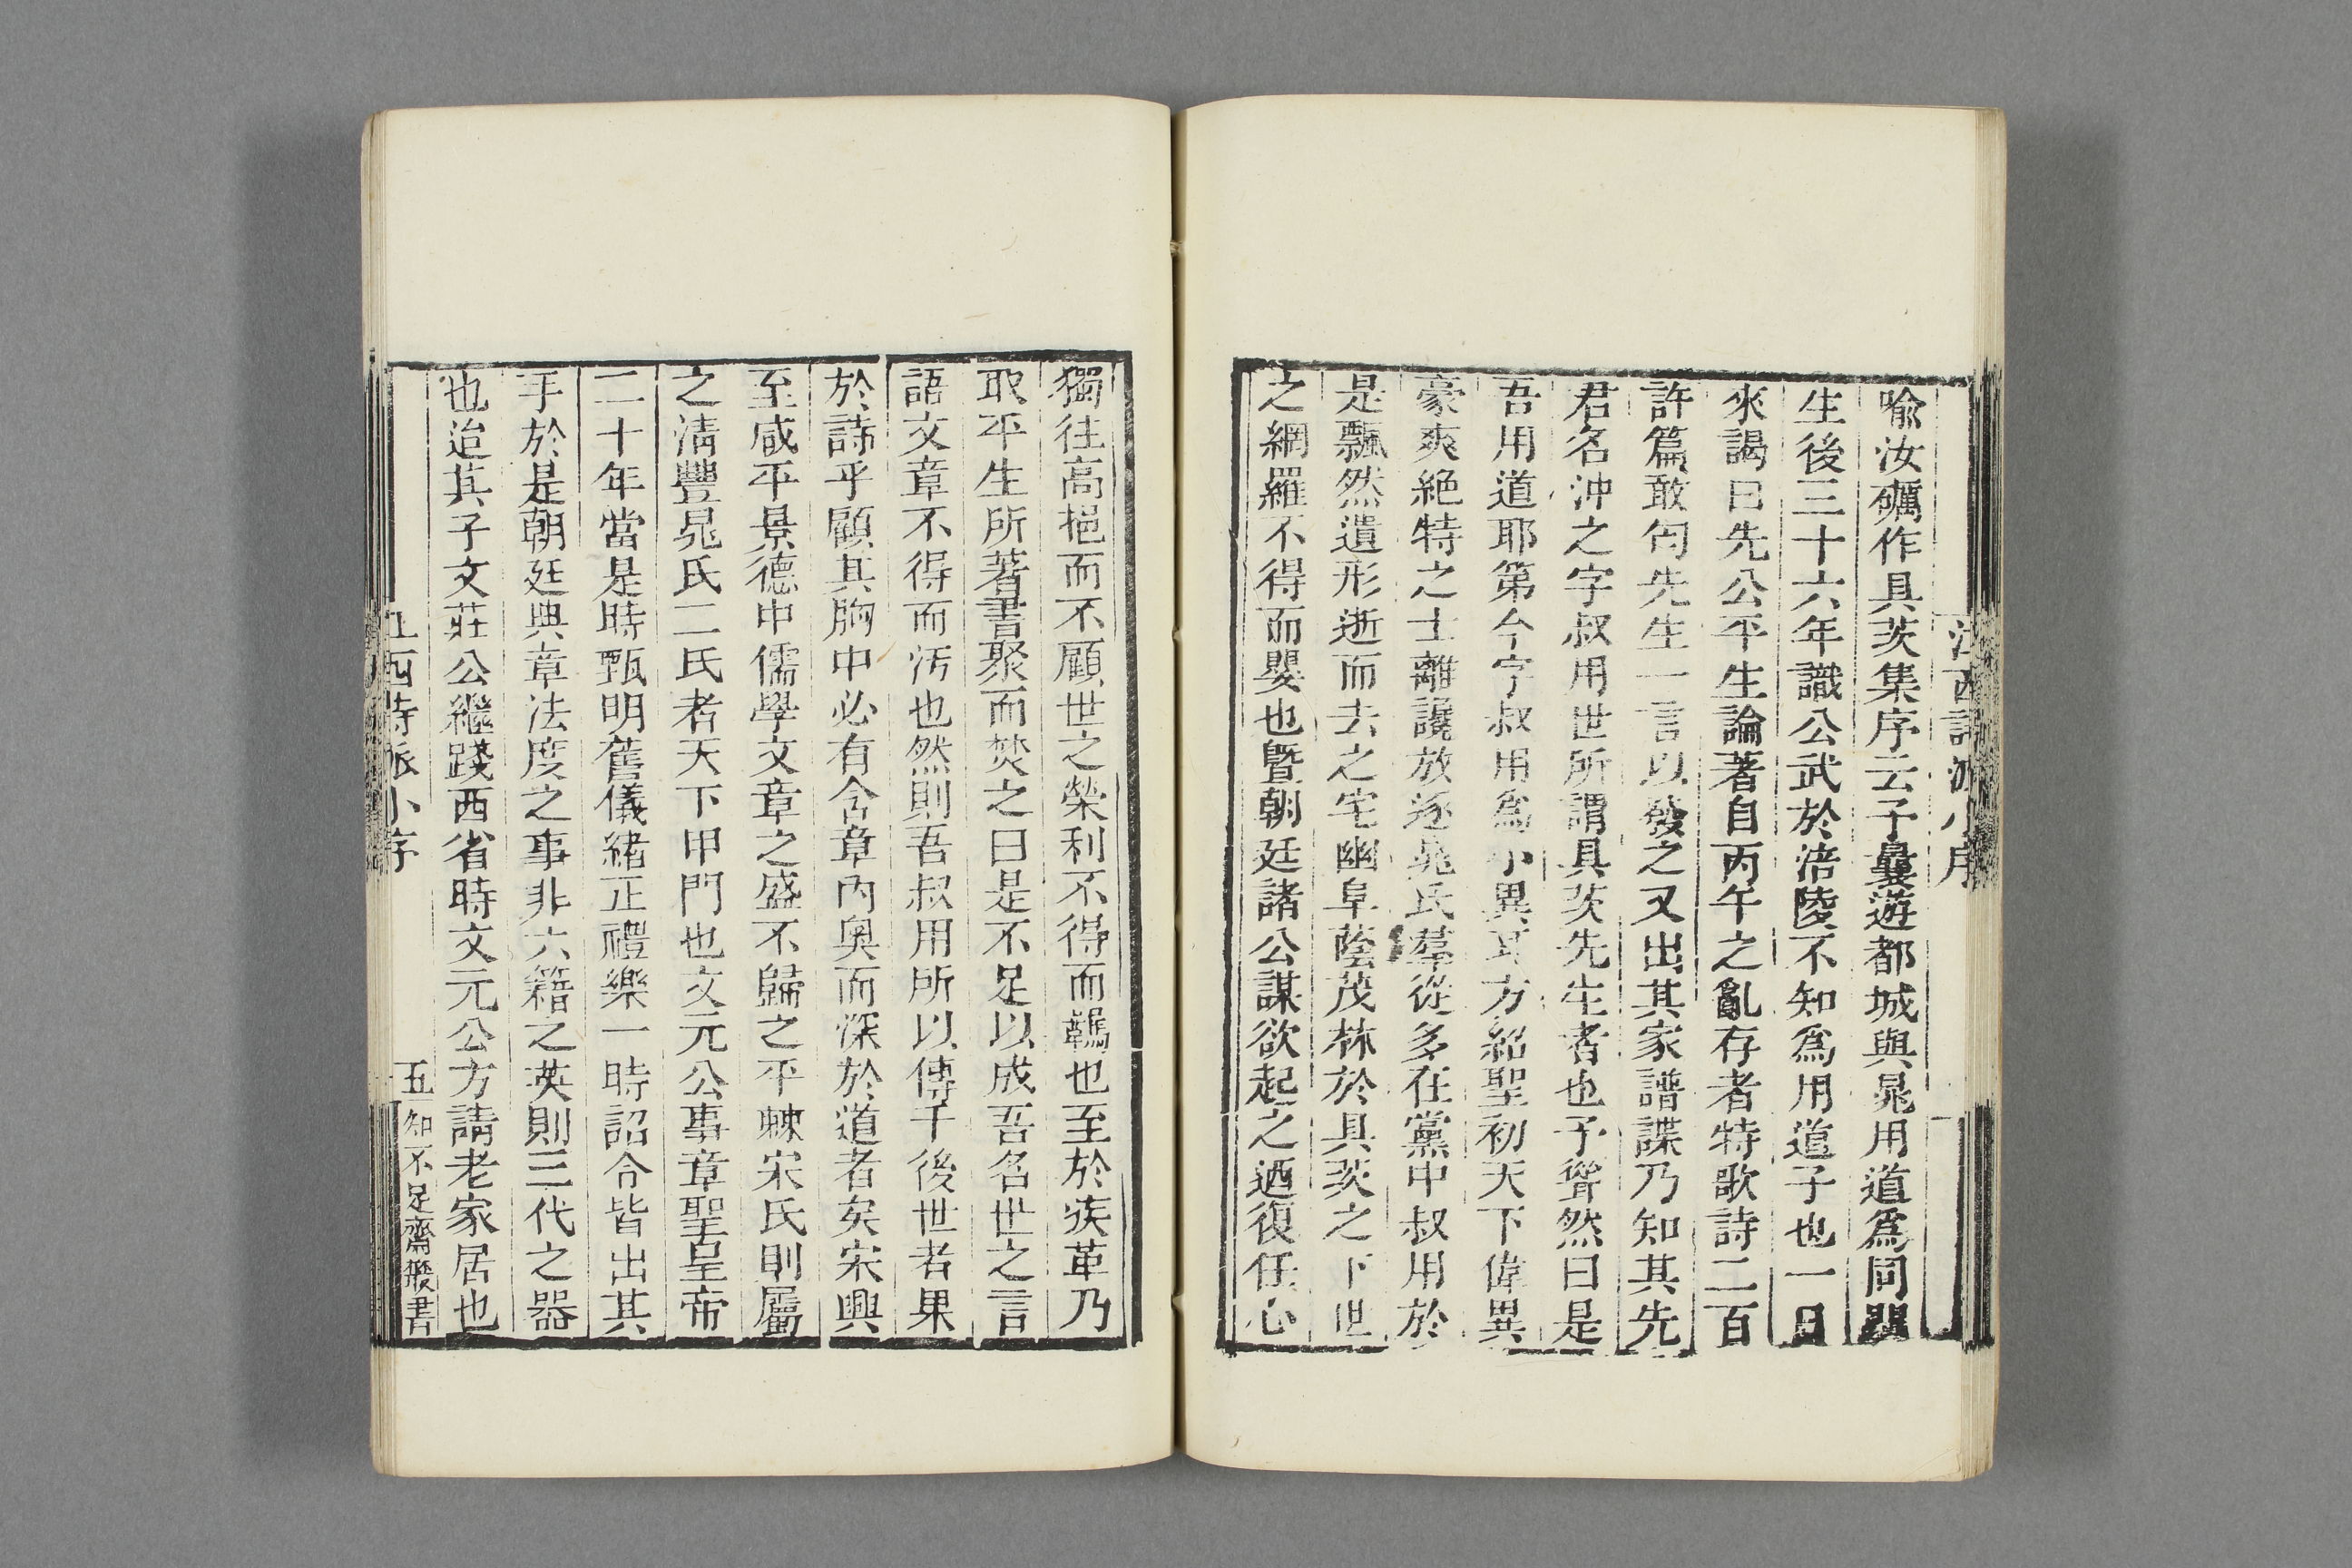 江西詩派小序
喻汝礪作具茨集序云予曩遊都城與晁用道爲同門
生後三十六年識公武於涪陵不知爲用道子也一日
來謁曰先公平生論著自丙午之亂存者特歌詩二百
許篇敢匄先生一言以發之又出其家譜諜乃知其先
君名沖之字叔用世所謂具茨先生者也予聳然曰是
吾用道耶第今字叔用爲小異耳方紹聖初天下偉異
豪爽絶特之士離讒放逐晁氏羣從多在黨中叔用於
是飄然遺形逝而去之宅幽阜蔭茂林於具茨之下世
之網羅不得而嬰也曁朝廷諸公謀欲起之迺復任心
獨往高挹而不顧世之榮利不得而羈也至於疾革乃
取平生所著書聚而焚之曰是不足以成吾名世之言
語文章不得而汚也然則吾叔用所以傳千後世者果
於詩乎顧其胸中必有含章內奥而深於道者矣宋興
至咸平景德中儒學文章之盛不歸之平棘宋氏則屬
之淸豐晁氏二氏者天下甲門也文元公事章聖皇帝
二十年當是時甄明舊儀緒正禮樂一時詔令皆出其
手於是朝廷典章法度之事非六籍之英則三代之器
也迨其子文莊公繼踐西省時文元公方請老家居也
江西詩派小序
五
知不足齋叢書